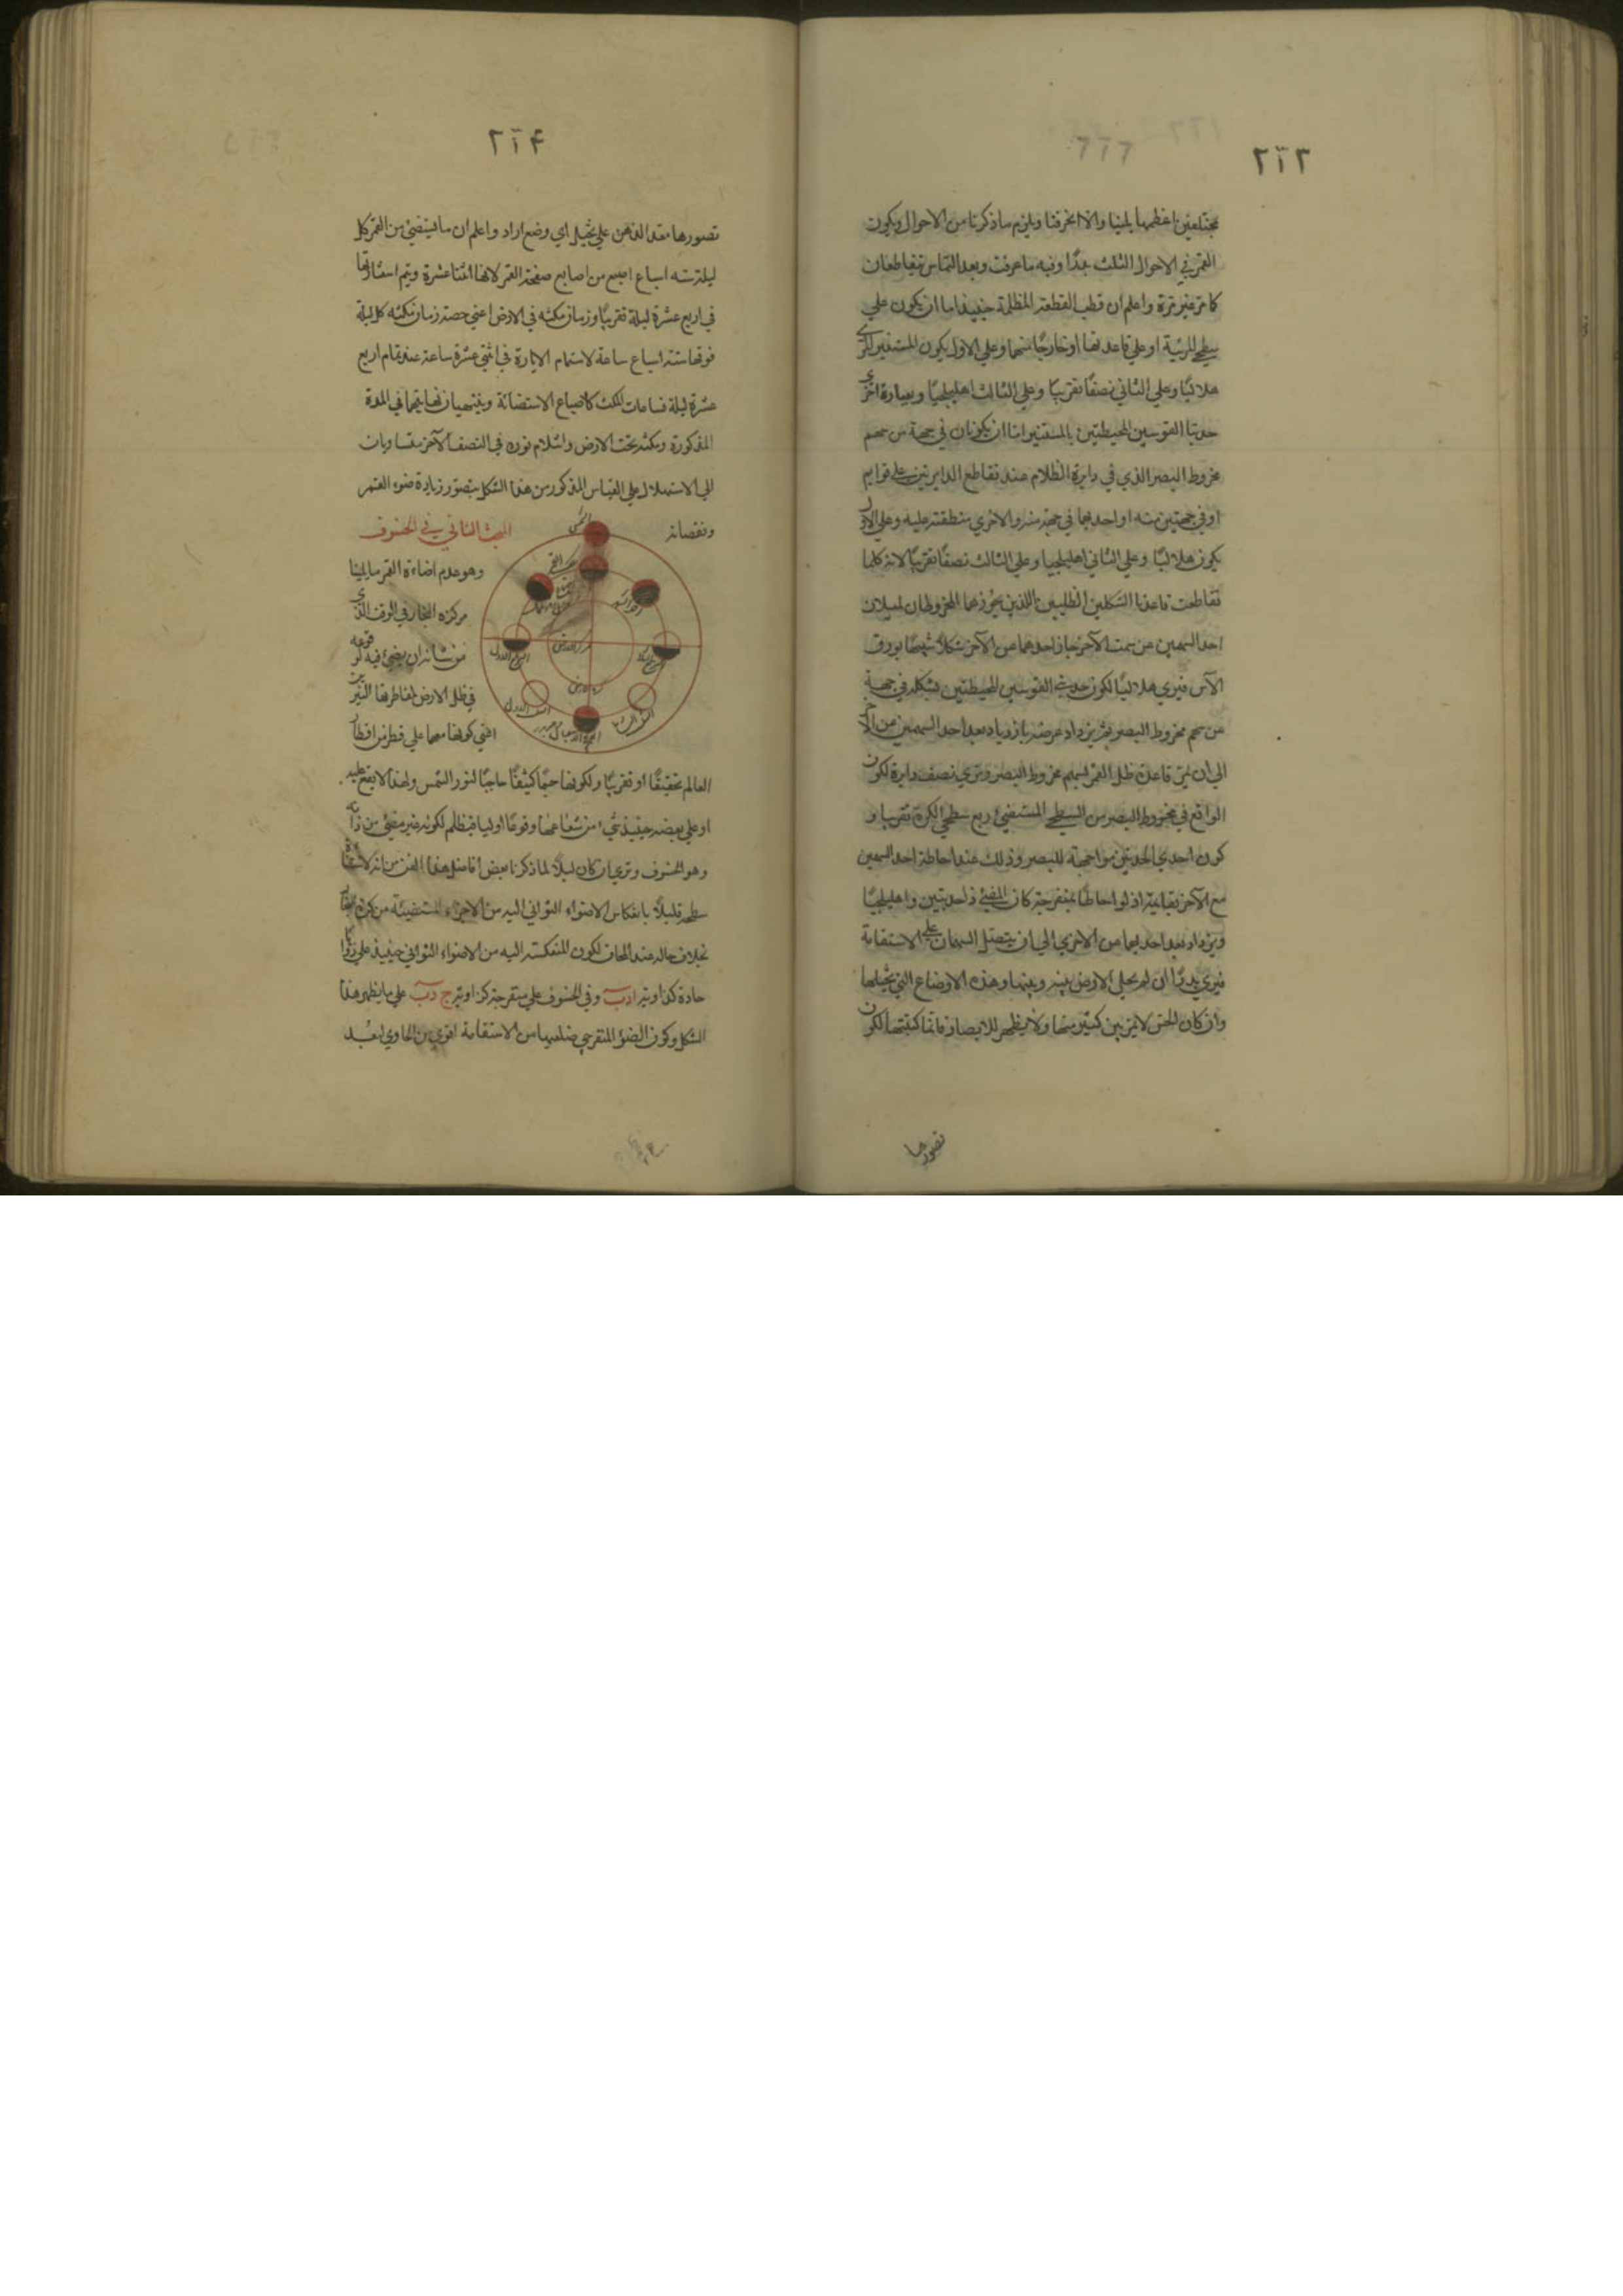 ٢١٣
مختلفين اعظمهما يلينا والا انحرفتا ويلزم ما ذكرنا من الاحوال ويكون
القمر في الاحوال الثلث بدرًا وفيه ما عرفت وبعد التماس تتقاطعان
كما مر غير مرة واعلم ان قطب القطعة المظلمة حينئذ اما ان يكون علي
سطح المرئية او علي قاعدتها او خارجًا عنها وعلي الاول يكون المستنير
هلاليًا وعلي الثاني نصفًا تقريبًا وعلي الثالث اهليلجيًا وبعبارة اخري
حدبتا القوسين المحيطتين بالمستنير اما ان يكونان في جهة من سهم
مخروط البصر الذي في دايرة الظلام عند تقاطع الدايرتين علي قوايم
او في جهتين منه او احديهما في جهة منه والاخري منطبقة عليه وعلي الاول
يكون هلاليًا وعلي الثاني اهليلجيا وعلي الثالث نصفًا تقريبًا لانه كلما
تقاطعت قاعدتا الشكلين الظليين اللذين يحرزهما المخروطان لميلان
احد السهمين عن سمت الآخر نجاز احدهما من الآخر شكلا شبيهًا بورق
الآس فيري هلاليًا لكون حدبة القوسين المحيطتين بشكله في جهة
عن سهم مخروط البصر ثم يزداد عرضه بازدياد بعد احد السهمين عن الآخر
الي ان تمر قاعدة ظل القمر بسهم مخروط البصر ويري نصف دايرة لكون
الواقع في مخروط البصر من السطح المستضئ ربع سطحي الكرة تقريبا و
كون احدي الحدبتين مواجهة للبصر وذلك عند احاطة احد السهمين
مع الآخر بقايمة اذ لو احاطا بمنفرجة كان المضئ ذا حدبتين واهليلجيًا
ويزداد بعد احديهما من الاخري الي ان يتصل السهمان علي الاستقامة
فيري بدرًا ان لم يحل الارض بينه وبينها وهذه الاوضاع التي تخيلها
وان كان الحس لا يميز بين كثير منها ولا يظهر للابصار فانما كيفيتها لكون
تصورها
٢١٤
تصورها معد الذهن علي تخيل اي وضع اراد واعلم ان ما يستضئ من القمر كل
ليلة ستة اسباع اصبع من اصابع صفحة القمر لانها اثنا عشرة ويتم استنارتها
في اربع عشرة ليلة تقريبًا وزمان مكثه في الارض اعني حصة زمان مكثه كل ليلة
فوقها ستة اسباع ساعة لاستتمام الانارة في اثني عشرة ساعة عند تمام اربع
عشرة ليلة فساعات المكث كاصابع الاستضائة وينتهيان نهايتهما في المدة
المذكورة ومكثه تحت الارض وانثلام نوره في النصف الآخر متساويان
الي الاستهلال علي القياس المذكور من هذا الشكل يتصور زيادة ضوء القمر
ونقصانه
البحث الثاني في الخسوف
الشمس
مركز الارض
وهو عدم اضاءة القمر ما يلينا
مركزه البخار في الوقت الذي
من شانه ان يضئ فيه لوقوعه
في ظل الارض لمقاطرتها النيرين
اعني كونها معهما علي قطر من اقطار
العالم تحقيقًا او تقريبًا ولكونها جسمًا كثيفًا حاجبًا لنور الشمس ولهذا لا يقع عليه
او علي بعضه حينئذ شئ من شعاعها وقوعًا اوليا فيظلم لكونه غير مضئ من ذاته
وهو الخسوف ويري ان كان ليلًا لما ذكرنا بعض افاضل هذا الفن من انه
سطحه قليلًا بانعكاس الاضواء الثواني اليه من الاجزاء المستضيئة من كرة
بخلاف حاله عند المحاق لكون المنعكسة اليه من الاضواء الثواني حينئذ علي زوايا
حادة كزاوية ادب وفي الخسوف علي منفرجة كزاوية ج دب علي ما يظهر هذا
الشكل وكون الضوء المنفرجي ضلعيها من الاستقامة اقوي من الحاوي لبعد